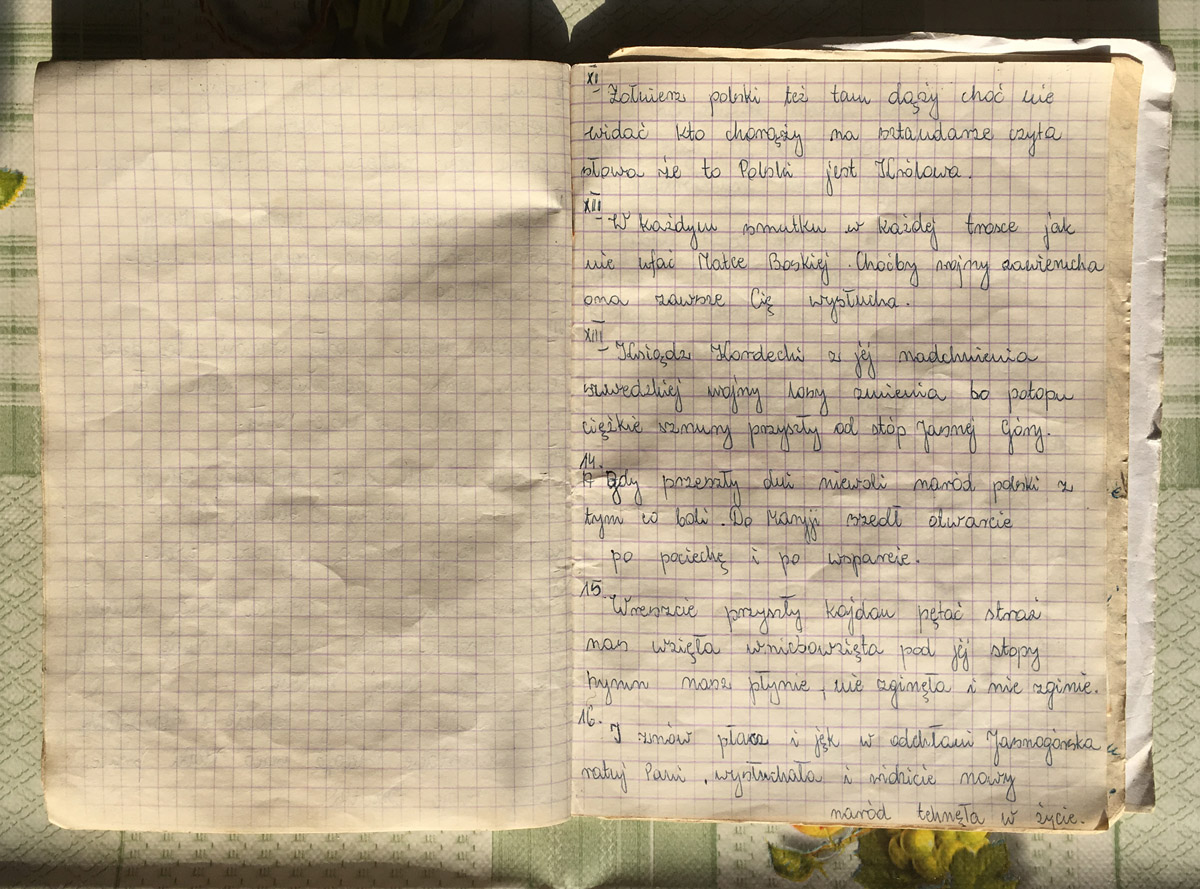 XI
Żołnierz polski też tam dąży choć nie
widać kto chorąży na sztandarze czyta
słowa że to Polski jest Królowa.
XII
W każdym smutku w każdej trosce jak
nie ufać Matce Boskiej. Choćby wojny zawierucha
ona zawsze Cię wysłucha.
XIII
Ksiądz Kordecki z jej nadchnienia
szwedzkiej wojny losy zmienia bo potopu
ciężkie sznury przyszły od stóp Jasnej Góry.
14.
Gdy przeszły dni niewoli naród polski z
tym co boli. Do Maryji szedł otwarcie
po pociechę i po wsparcie.
15.
Wreszcie przyszły kajdan pętać straż
nas wzięła wniebowzięta pod jej stopy
hymn nasz płynie, nie zginęła i nie zginie.
16.
I znów płacz i jęk w oddłani Jasnogórska
ratuj Pani, wysłuchała i widzicie nowy
naród tchnęła w życie.